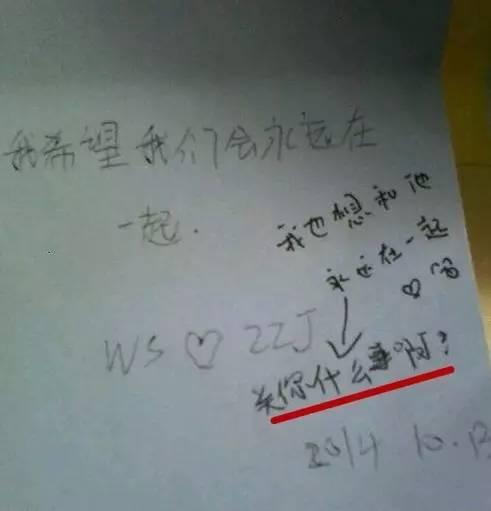 我希望我们会永远在
一起.
我也想和他
永远在一起
♡
WS ♡ ZZJ
关你什么事啊?
2014 10.13